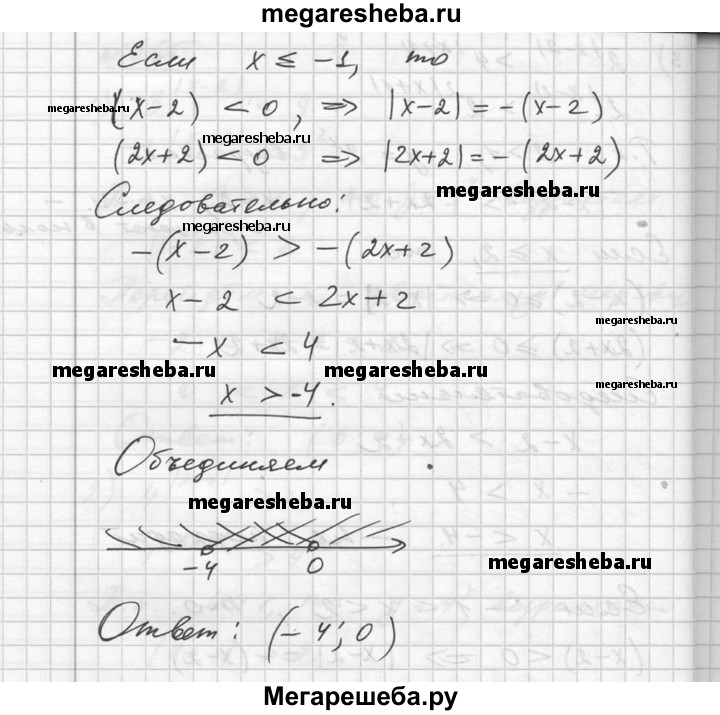 megaresheba.ru
Если x ≤ -1, то
(x-2) < 0, => |x-2| = -(x-2)
megaresheba.ru
megaresheba.ru
(2x+2) < 0 => |2x+2| = -(2x+2)
megaresheba.ru
Следовательно:
megaresheba.ru
-(x-2) > -(2x+2)
x-2 < 2x+2
megaresheba.ru
-x < 4
megaresheba.ru megaresheba.ru
megaresheba.ru
x > -4.
Объединяем
megaresheba.ru
-4 0
megaresheba.ru
Ответ: (-4; 0)
Мегарешеба.ру